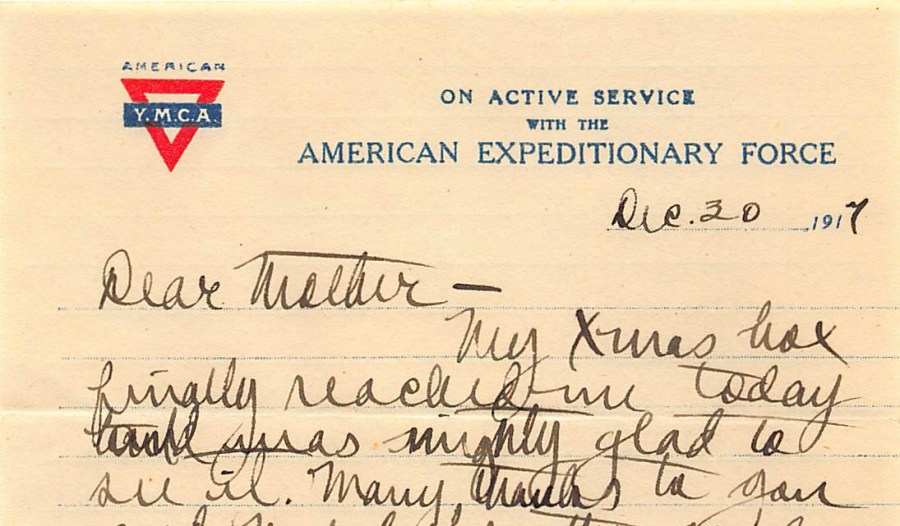 AMERICAN
Y.M.C.A.
ON ACTIVE SERVICE
WITH THE
AMERICAN EXPEDITIONARY FORCE
Dec. 30 1917
Dear Mother —
My X-mas box
finally reached me today
was mighty glad to
see it. Many, thanks to you